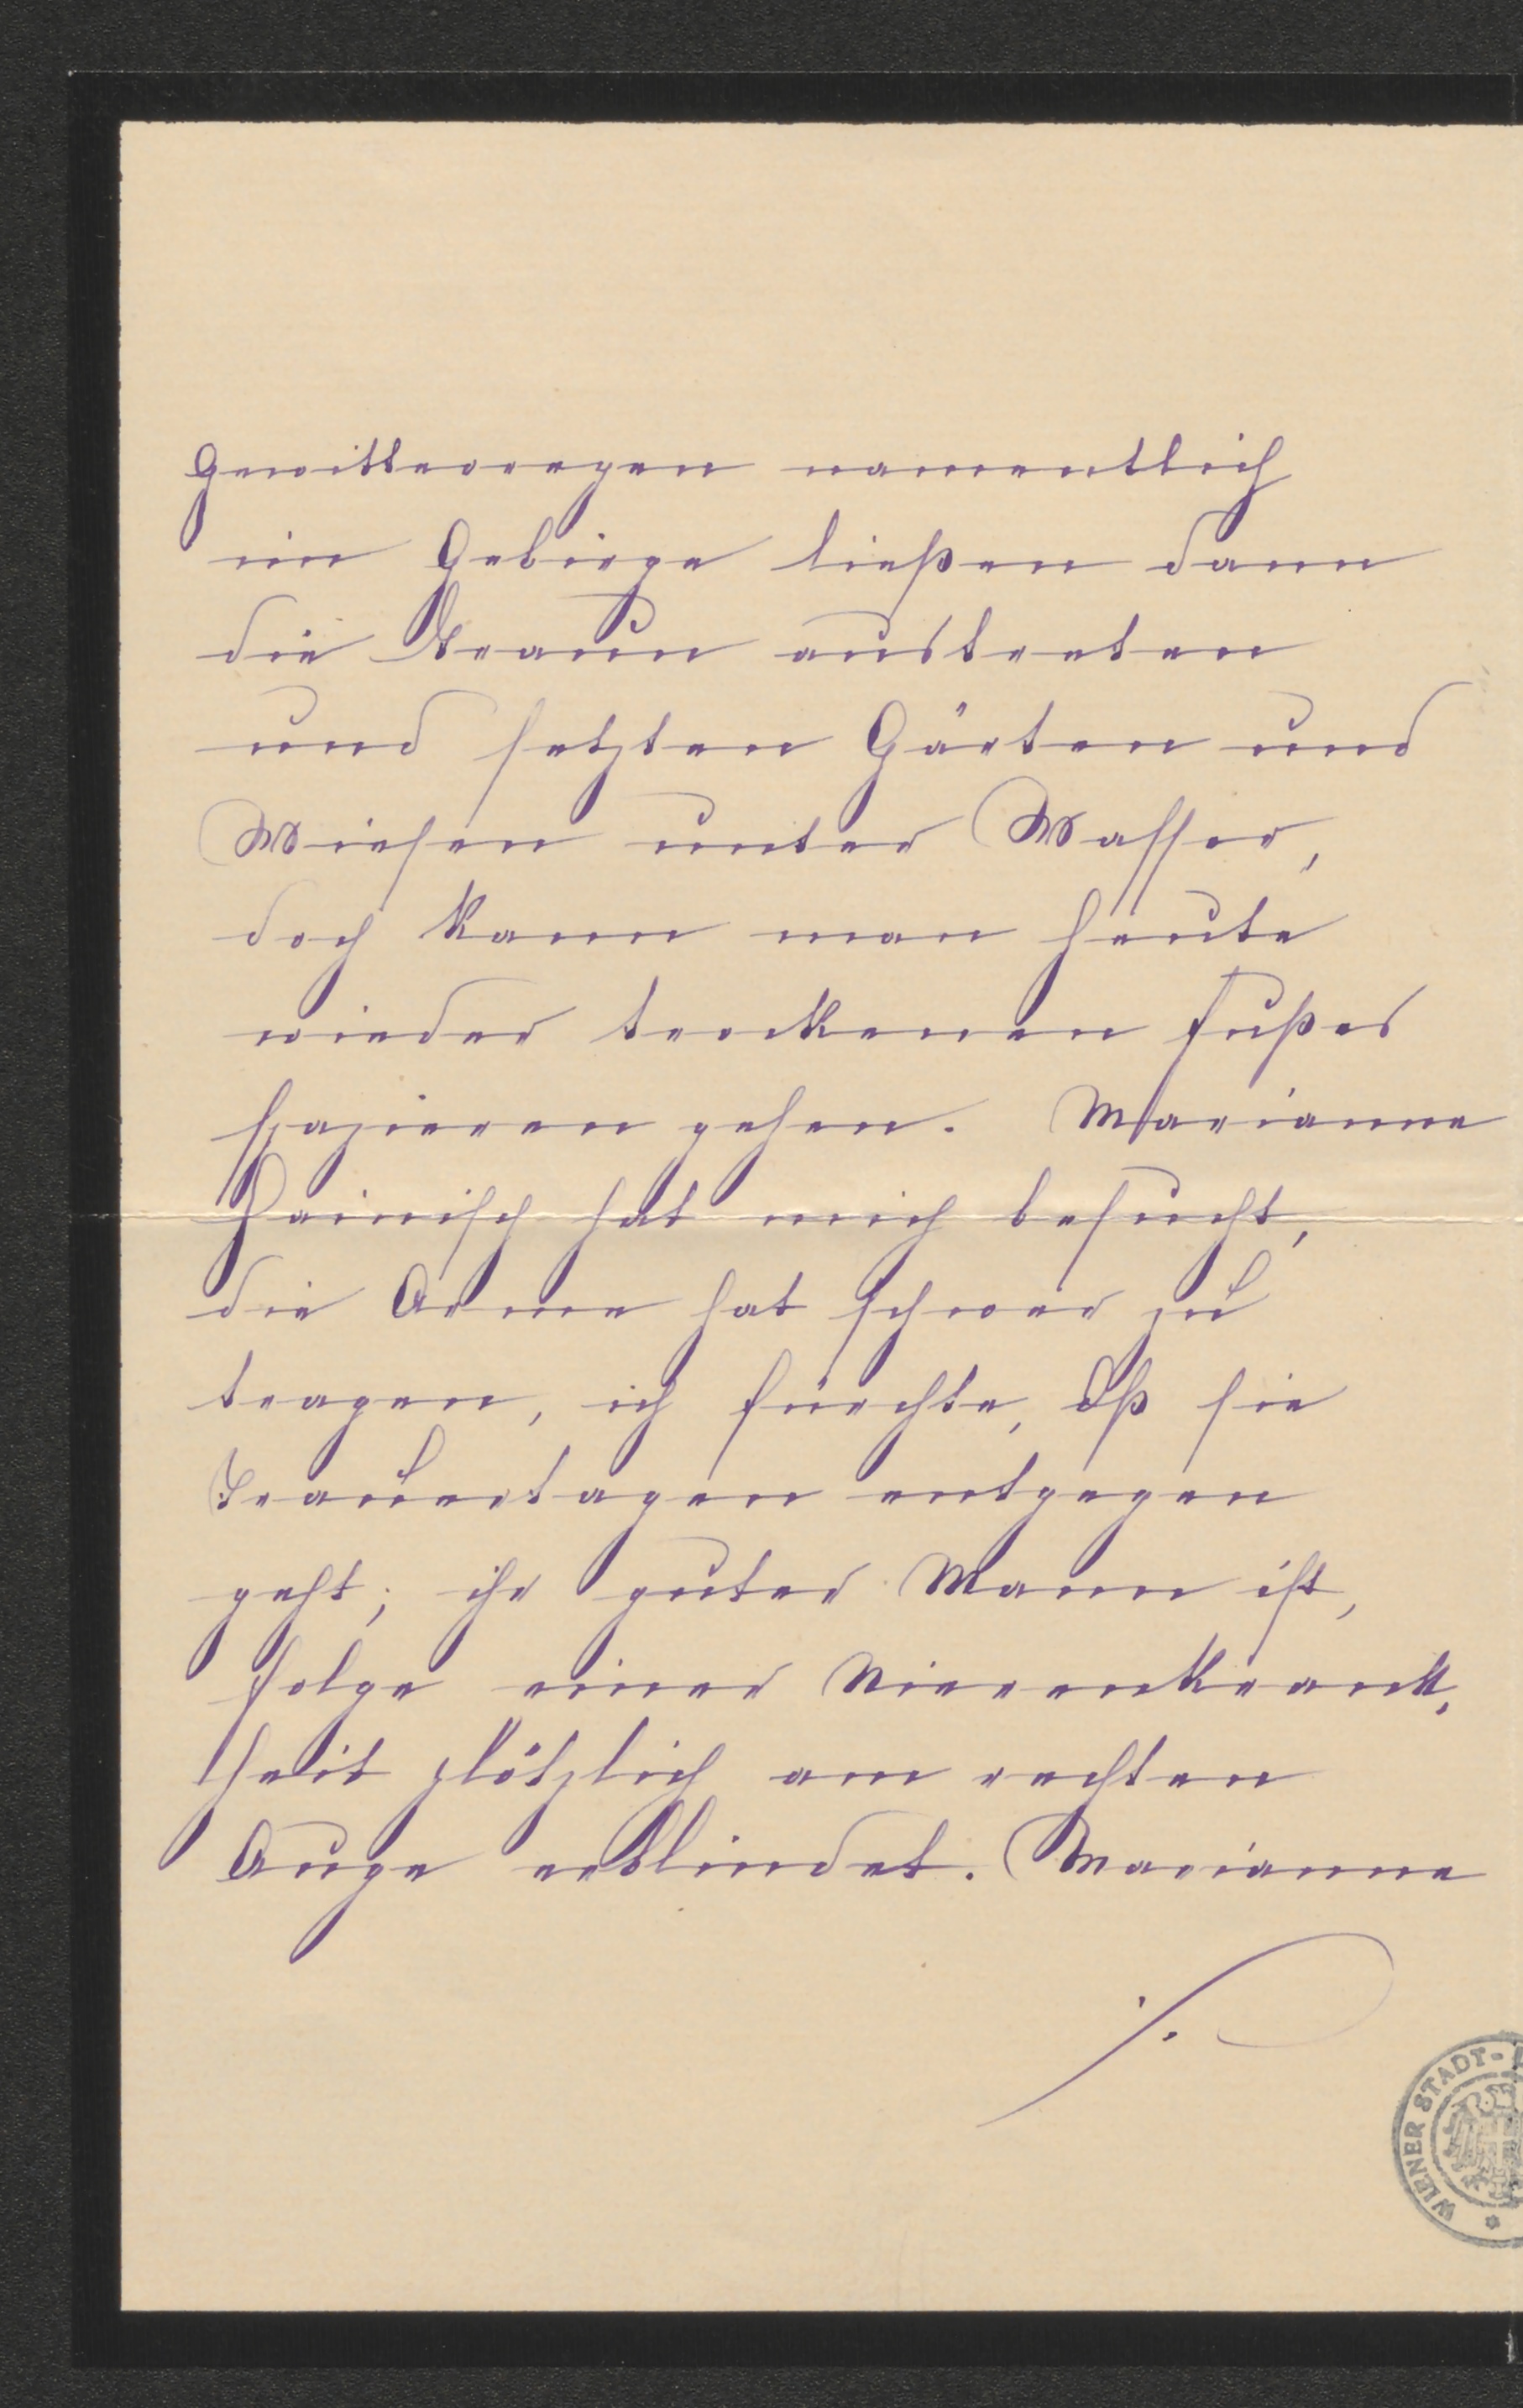 Gewitterregen namentlich
im Gebirge ließen dann
die Traun austreten
und setzten Gärten und
Wiesen unter Wasser,
doch kann man heute
wieder trockenen Fußes
spazieren gehen. Marianne
Hainisch hat mich besucht,
die Arme hat schwer zu
tragen, ich fürchte, dß sie
Trauertagen entgegen
geht; ihr guter Mann ist,
folge einer Nierenkrank,
heit plötzlich am rechten
Auge erblindet. Marianne
WIENER STADT-